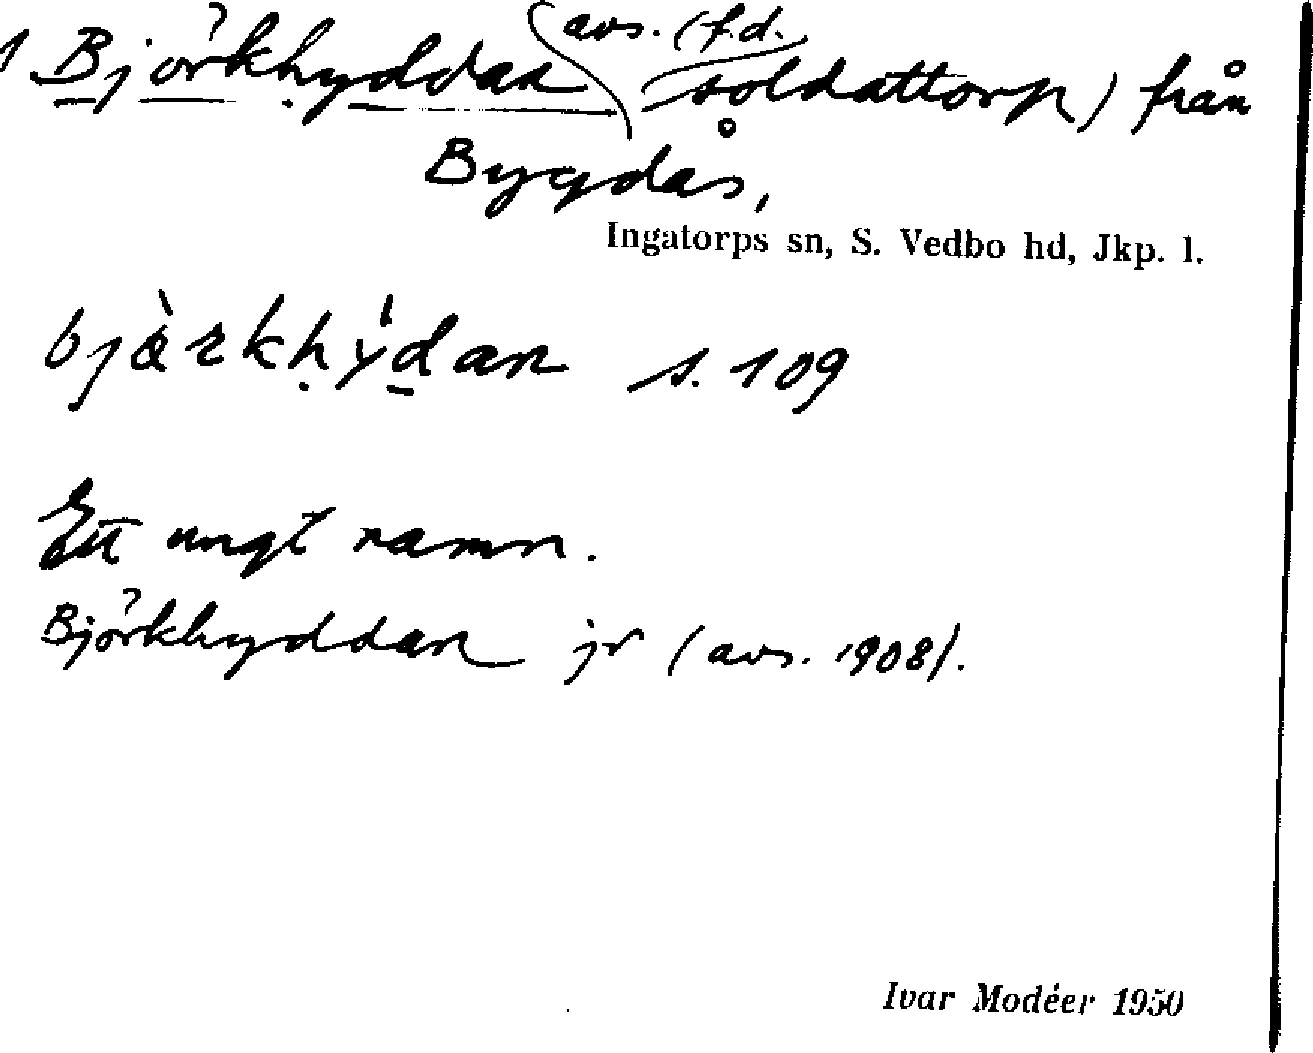 1 Björkhyddan avs. (f.d. soldattorp) från
Bygdås,
Ingatorps sn, S. Vedbo hd, Jkp. l.
bjàrkḥỳḏan s. 109
Ett ungt namn.
Björkhyddan jr (avs. 1908).
Ivar Modéer 1950